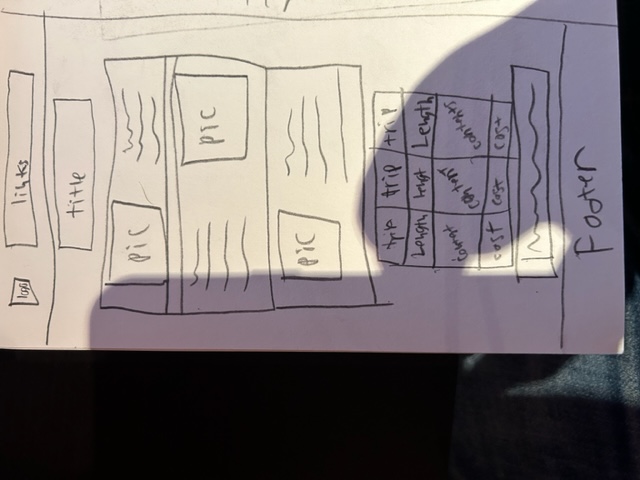 logo links
title
pic
pic
pic
trip trip trip
Length Lengt Length
content contents
cost cost cost
Footer